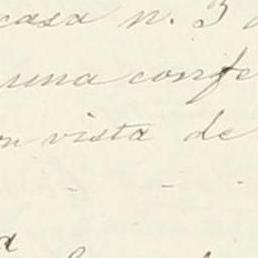 casa n. 3
una confe
n vista de
a